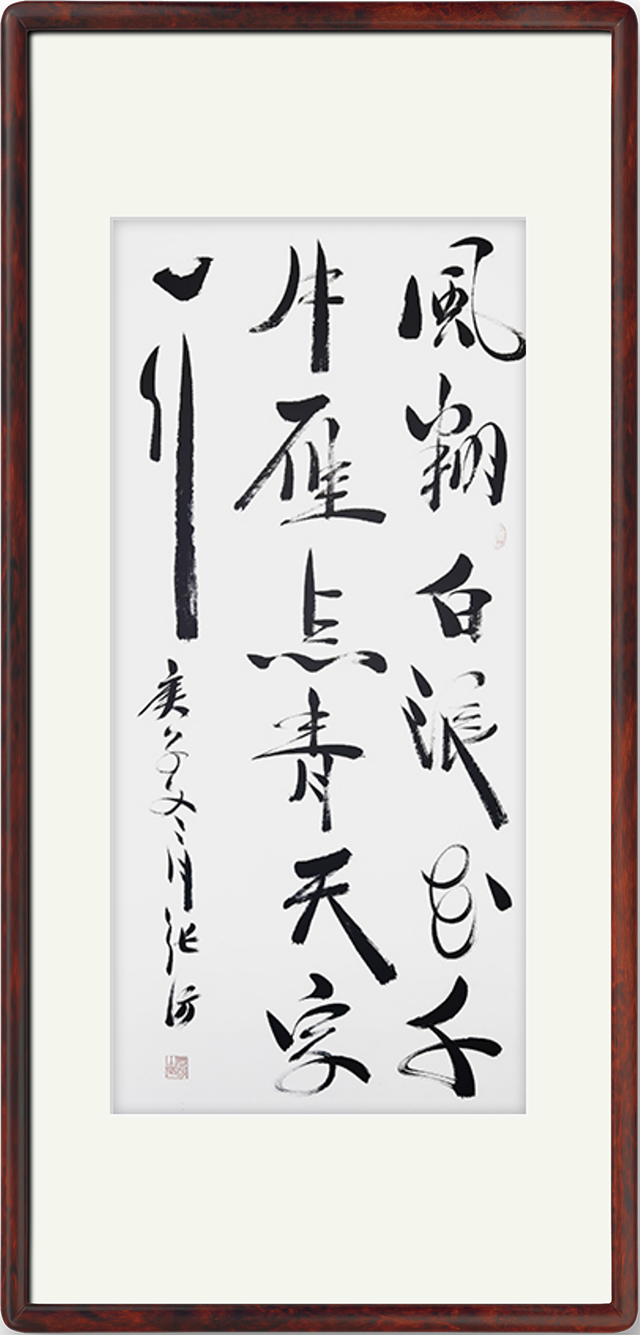 風翻白浪花千
片雁点青天字
一行
庚子冬月张